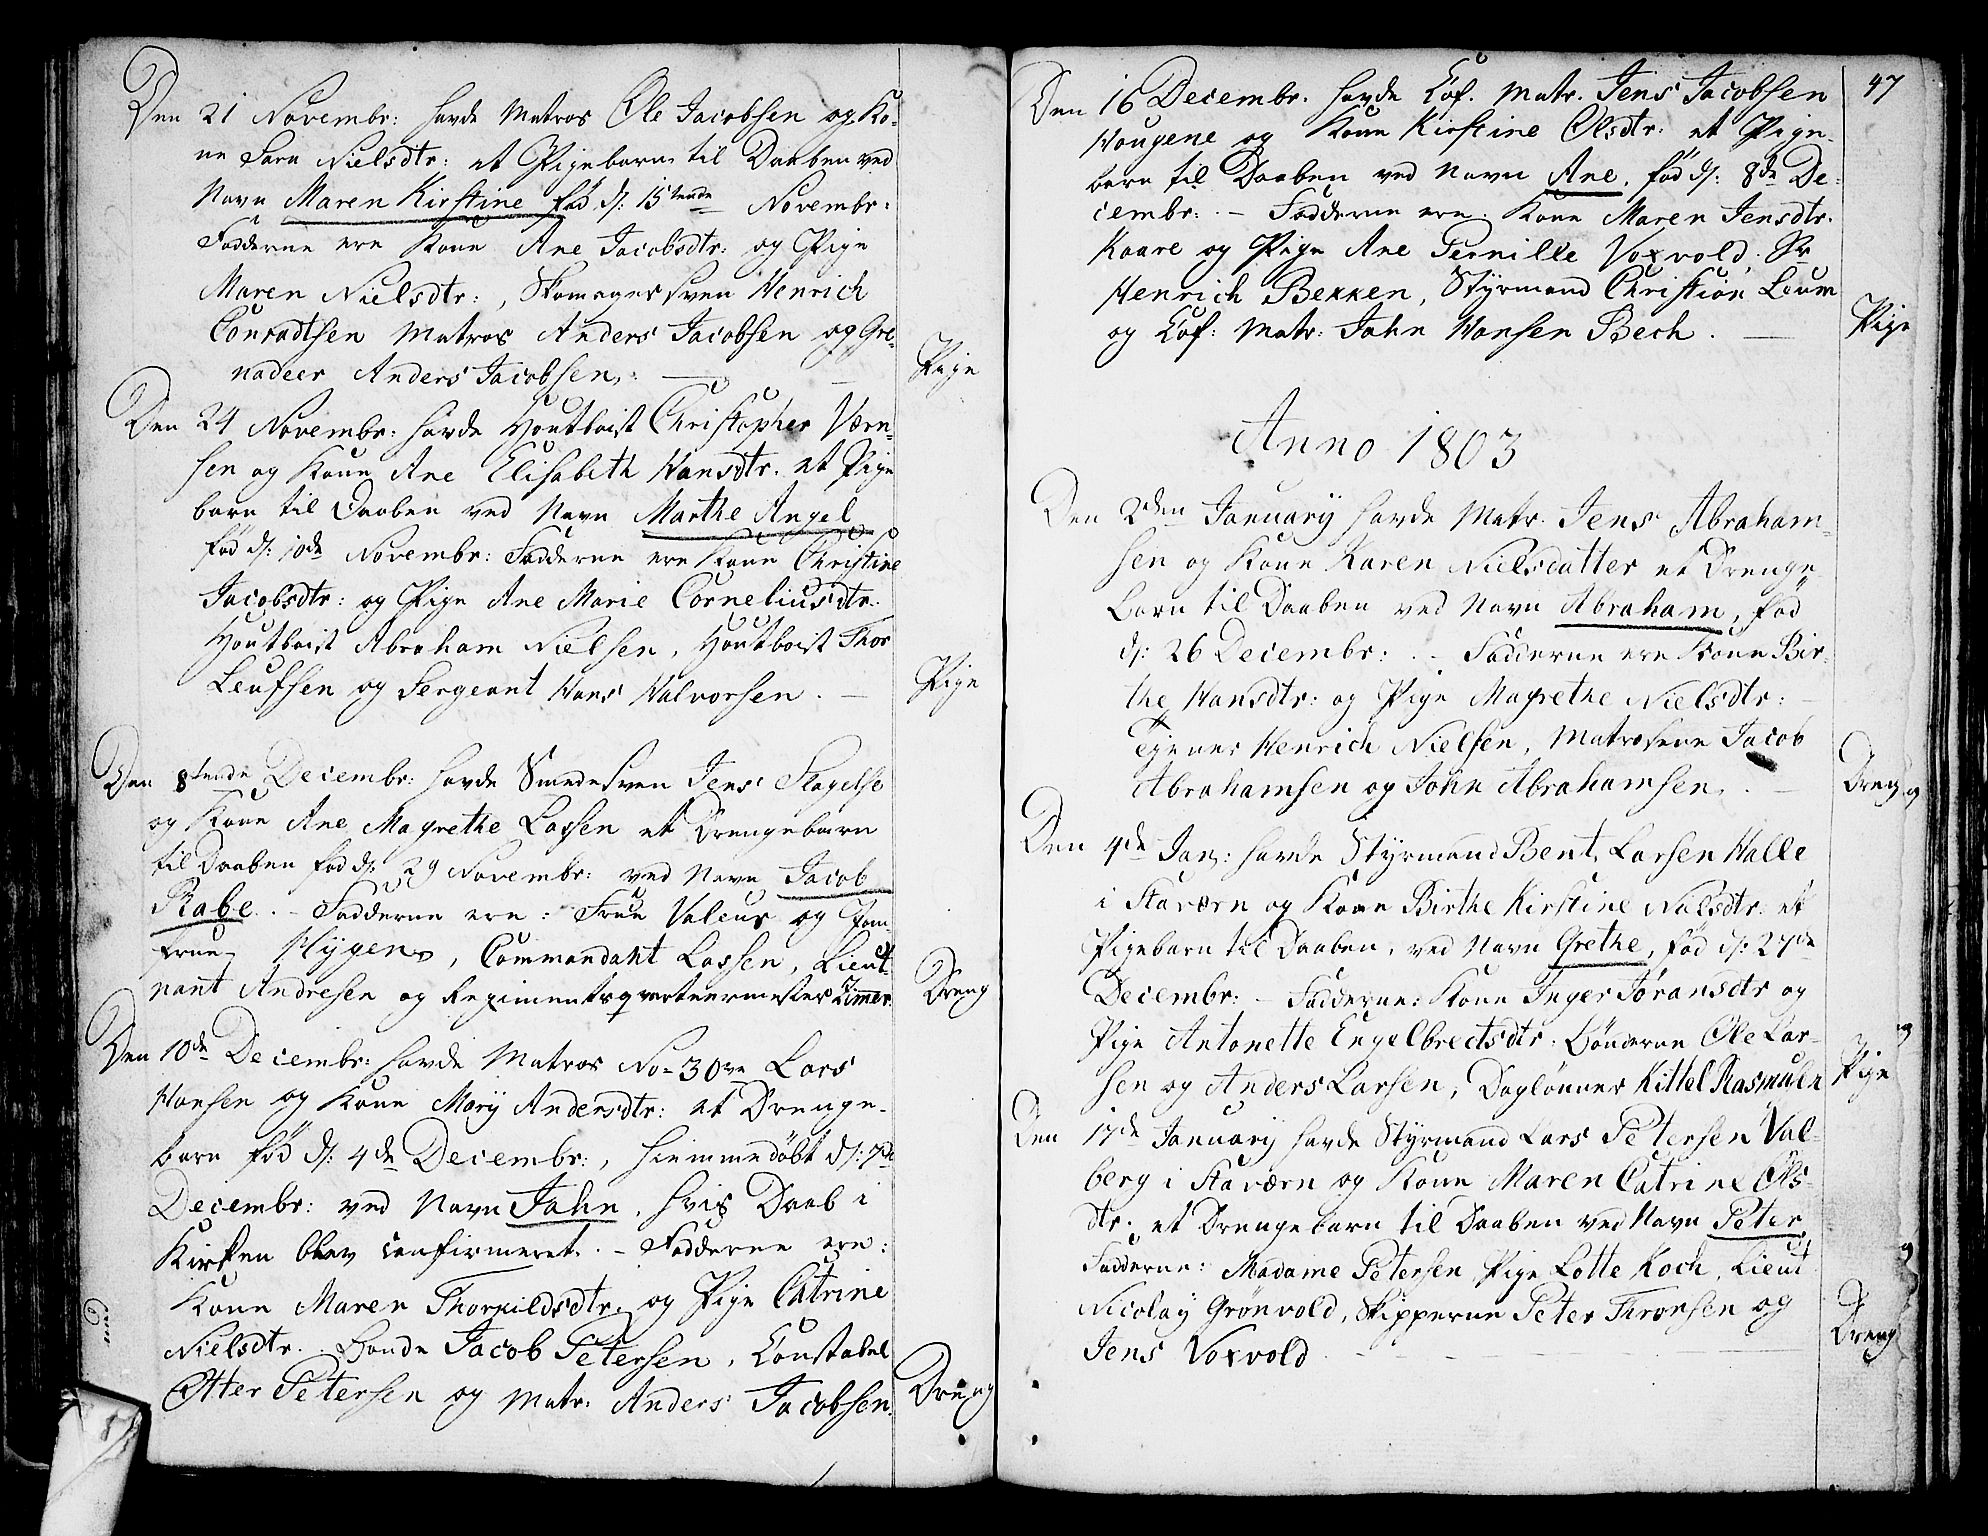 Den 21 Novembr: havde Matros Ole Jacobsen og Ko-
ne Sara Nielsdtr: et Pigebarn til Daaben ved
Navn Maren Kirstine fød d: 15tende Novembr:
Fadderne ere Kone Ane Jacobsdtr: og Pige
Maren Nielsdtr:, Skomagersven Henrich
Conradtsen Matros Anders Jacobsen og Gre-
nadeer Anders Jacobsen.
Pige
Den 24 Novembr: havde Houtboist Christopher Værn-
sen og Kone Ane Elisabeth Hansdtr. et Pige
barn til Daaben ved Navn Marthe Angel
fød d: 10de Novembr: Fadderne ere Kone Christine
Jacobsdtr: og Pige Ane Marie Corneliusdtr.
Houtboist Abraham Nielsen, Houtboist Thor
Leufsen og Sergeant Hans Halvorsen.
Pige
Den 8tende Decembr: havde Smedesven Jens Slagelse
og Kone Ane Magrethe Lassen et Drengebarn
til Daaben fød d: 29 Novembr: ved Navn Jacob
Rabe. - Fadderne ere: Frue Valeur og Jom-
frue Hygen, Commandant Lassen, Lieut-
nant Andresen og Regimentsqvarteermester Zimer
Dreng
Den 10de Decembr: havde Matros No- 30ve Lars
Hansen og Kone Mary Andersdtr: et Drenge-
barn fød d: 4de Decembr:, hiemmedøbt d: 7de
Decembr: ved Navn Jahn, hvis Daab i
Kirken blev confirmeret. - Fadderne ere:
Kone Maren Thorkildsdtr. og Pige Catrine
Nielsdtr. Bonde Jacob Petersen, Constabel
Otter Petersen og Matr: Anders Jacobsen.
Dreng
47
Den 16 Decembr. havde Cof. Matr. Jens Jacobsen
Haugene og Kone Kirstine Olsdtr: et Pige-
barn til Daaben ved Navn Ane, fød d: 8de De-
cembr: - Fadderne ere: Kone Maren Jensdtr.
Kaare og Pige Ane Pernille Voxvold. Sr
Henrich Bekken, Styrmand Christian Laum
og Cof: Matr: Jahn Hansen Bech.
Pige
Anno 1803
Den 2den January havde Matr. Jens Abraham-
sen og Kone Karen Nielsdatter et Drenge
Barn til Daaben ved Navn Abraham, fød
d: 26 Decembr: - Fadderne ere Kone Bir-
the Hansdtr: og Pige Magrethe Nielsdtr:
Tjener Henrich Nielsen, Matroserne Jacob
Abrahamsen og John Abrahamsen.
Dreng
Den 4de Jan: havde Styrmand Bent Larsen Halle
i Staværn og Kone Birthe Kirstine Nielsdtr: et
Pigebarn til Daaben, ved Navn Grethe, fød d: 27de
Decembr: - Fadderne: Kone Inger Jøransdtr og
Pige Antonette Engelbrectsdtr. Bønderne Ole Lar-
sen og Anders Larsen, Daglønner Kittel Rasmusen
Pige
Den 17de January havde Styrmand Lars Petersen Val-
berg i Staværn og Kone Maren Catrine Ols-
dtr. et Drengebarn til Daaben ved Navn Peter
Fadderne: Madame Petersen Pige Lotte Koch, Lieut
Nicolay Grønvold, Skipperne Peter Tronsen og
Jens Voxvold
Dreng